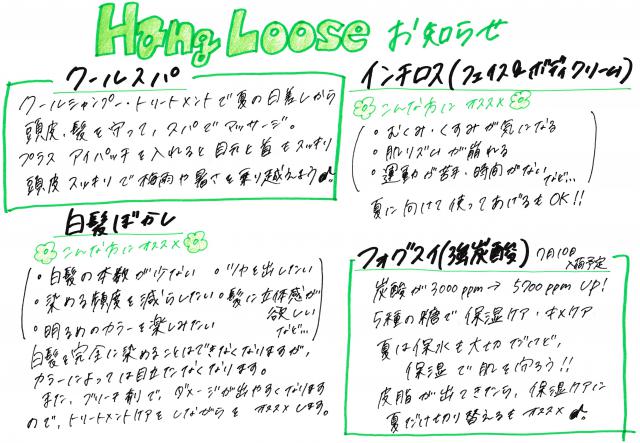 Hang Loose お知らせ
クールスパ
クールシャンプー・トリートメントで夏の日差しから
頭皮、髪を守って、スパでマッサージ。
プラス アイパッチを入れると目元と首もスッキリ
頭皮スッキリで梅雨や暑さを乗り越えよう♪
白髪ぼかし
こんな方にオススメ
・白髪の本数が少ない ・ツヤを出したい
・染める頻度を減らしたい ・髪に立体感が
欲しい
・明るめのカラーを楽しみたい など…
白髪を完全に染めることはできなくなりますが、
カラーによっては目立たなくなります。
また、ブリーチ剤で、ダメージが出やすくなります
ので、トリートメントケアをしながらを オススメします。
インチロス(フェイス&ボディクリーム)
こんな方に オススメ
・むくみ・くすみが気になる
・肌リズムが崩れる
・運動が苦手・時間がない
など…
夏に向けて使ってあげるもOK!!
フォグスイ(強炭酸) 7月10日
入荷予定
炭酸が3000ppm→5700ppm UP!
5種の糖で保湿ケア・キメケア
夏は保水も大切だけど、
保湿で肌を守ろう!!
皮脂が出てきたら、保湿ケアに
夏だけ切り替えるもオススメ♪